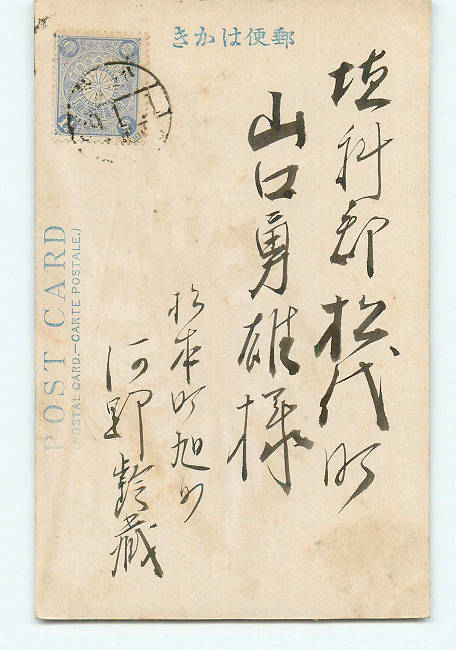 郵便はかき
埴科郡松代町
山口勇雄様
松本町旭町
河野齢蔵
POST CARD
(POSTAL CARD.—CARTE POSTALE.)